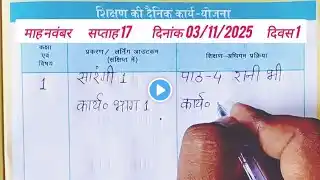 शिक्षण की दैनिक कार्य-योजना
माह नवंबर सप्ताह 17 दिनांक 03/11/2025 दिवस 1
कक्षा एवं विषय
प्रकरण/ लर्निंग आउटकम (संक्षिप्त में)
शिक्षण-अधिगम प्रक्रिया
1
सारंगी 1
पाठ-4 रानी भी
कार्य० भाग 1
कार्य०